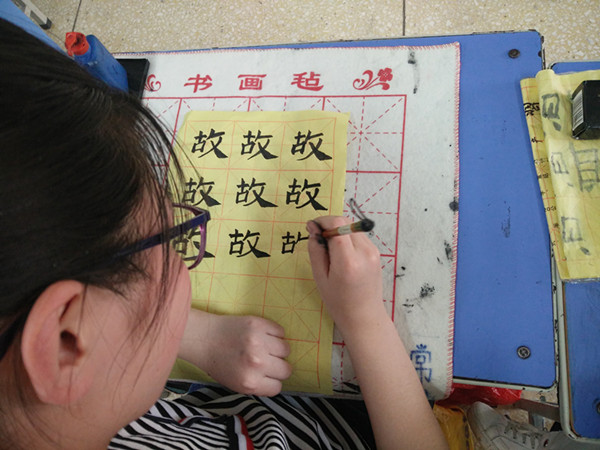 书画毡
故故故
故故故
故故古
常